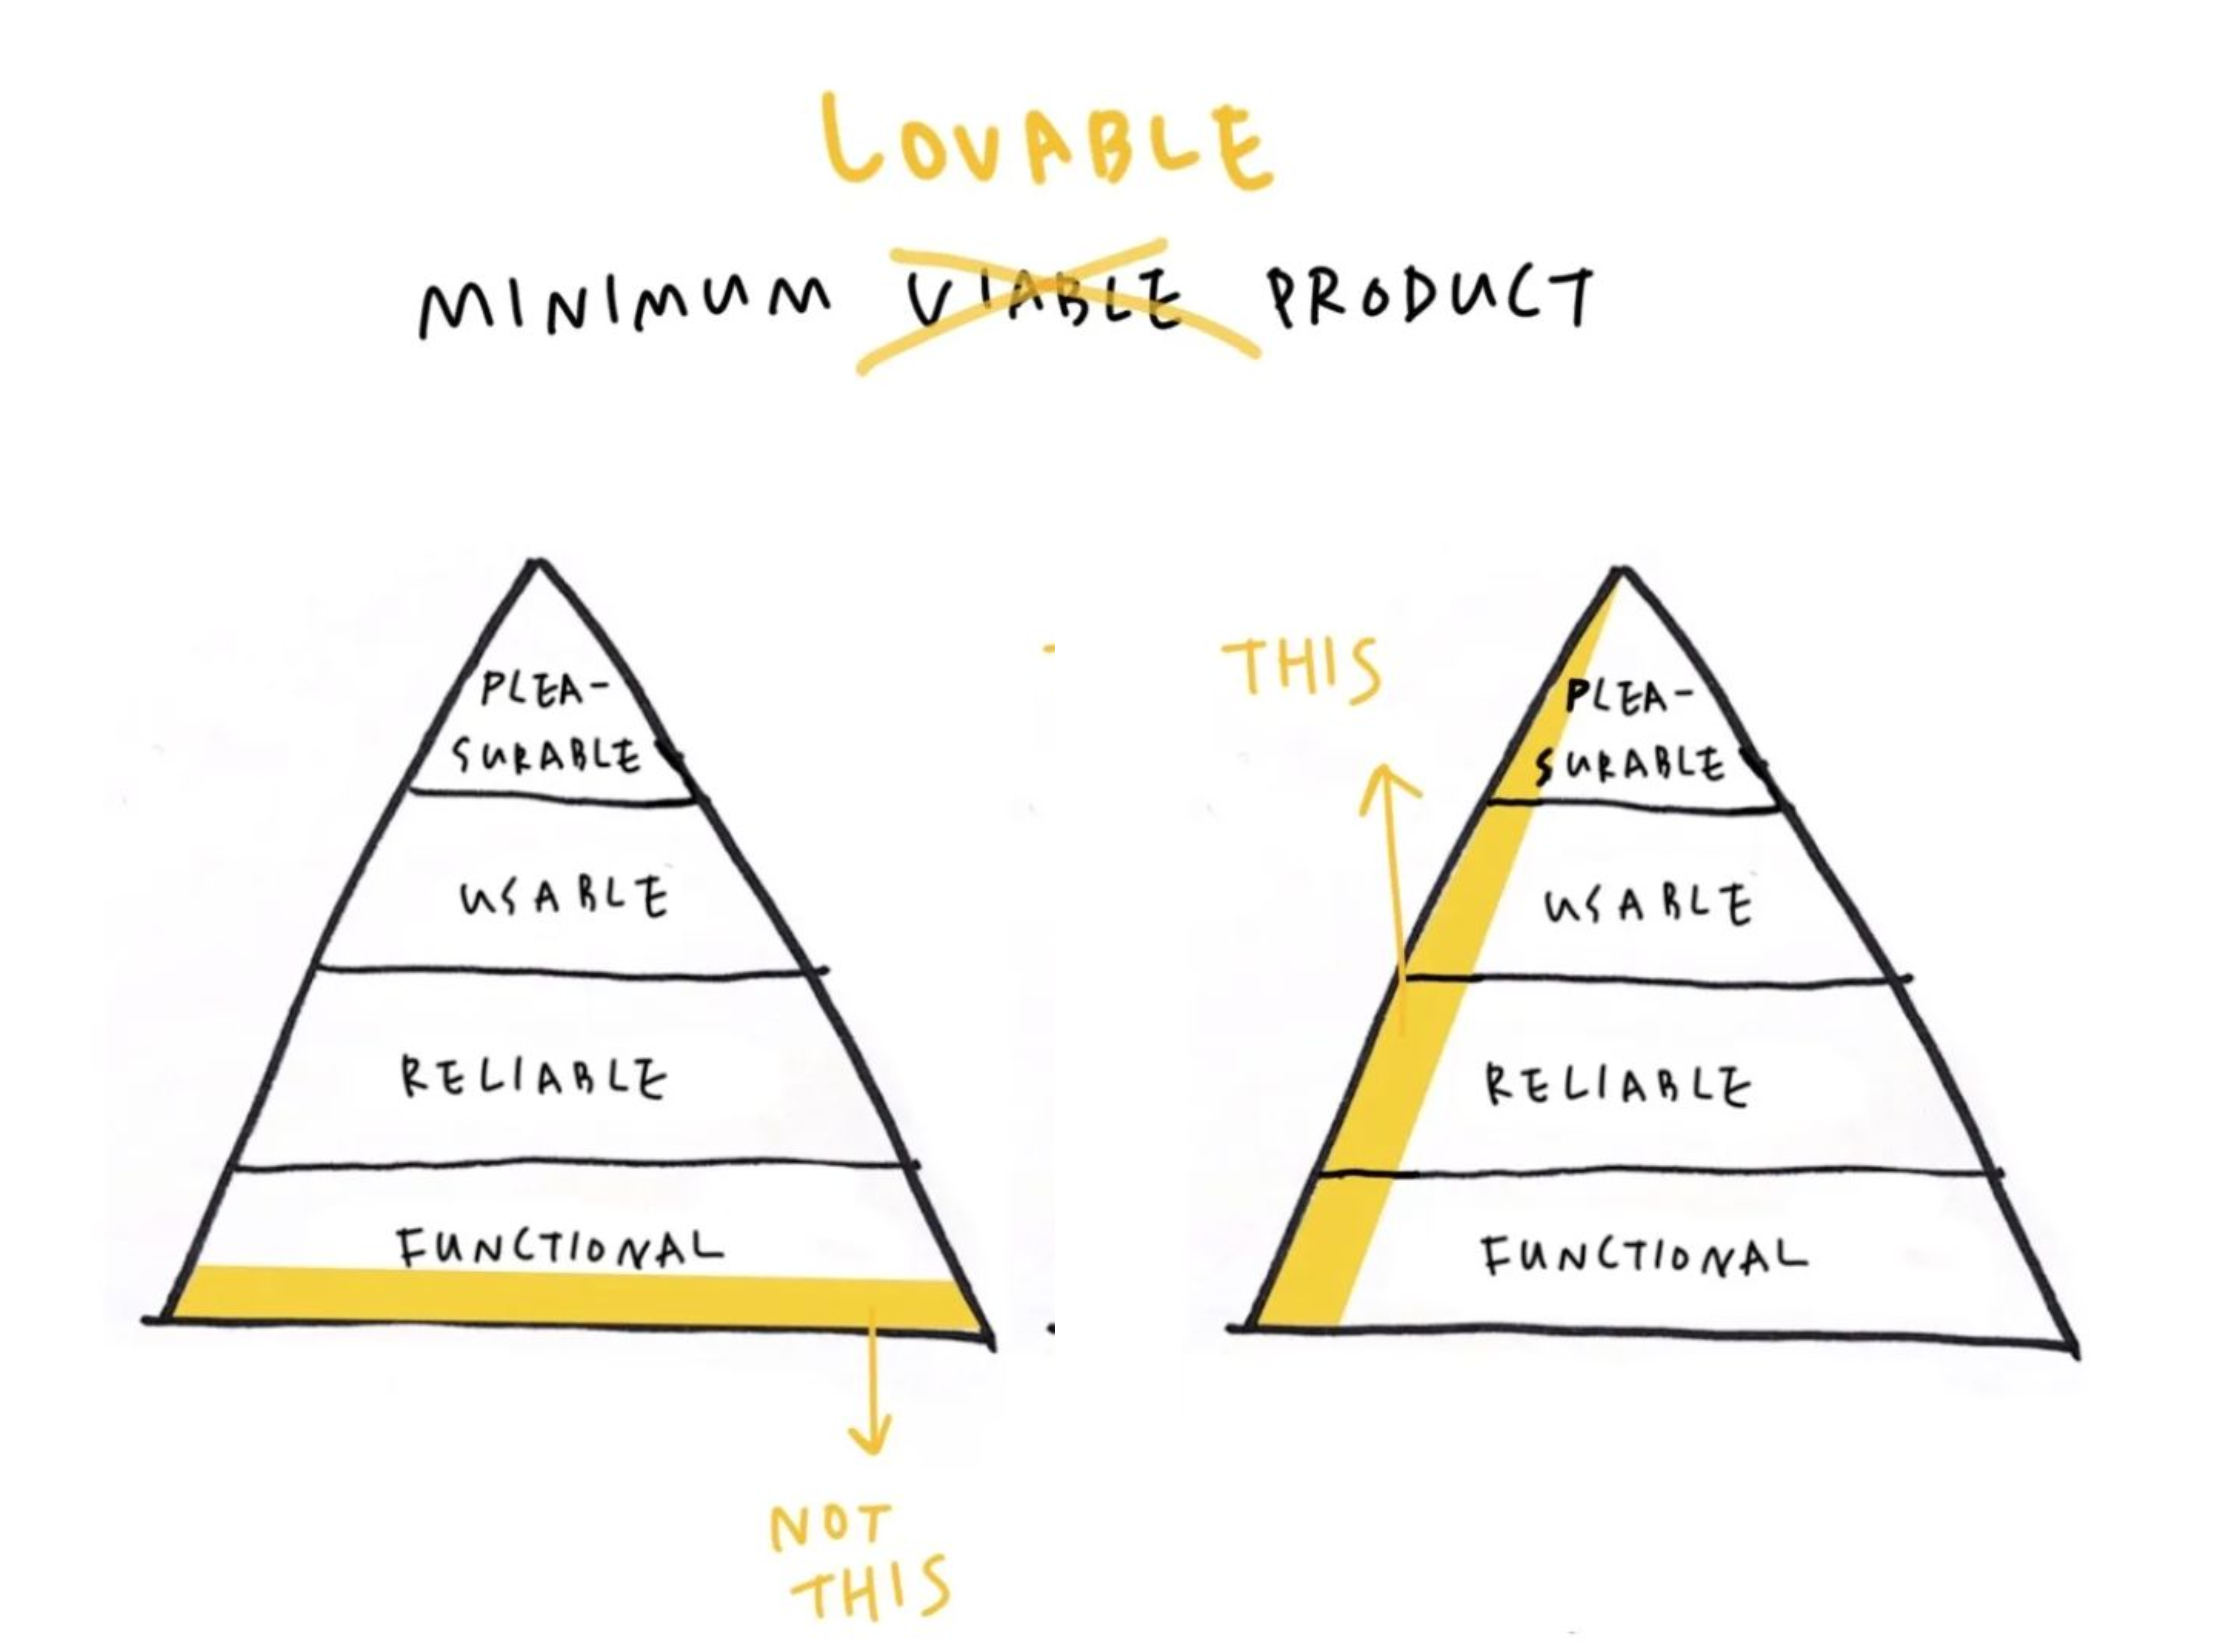 LOVABLE
MINIMUM VIABLE PRODUCT
PLEA-
SURABLE
USABLE
RELIABLE
FUNCTIONAL
NOT
THIS
THIS
PLEA-
SURABLE
USABLE
RELIABLE
FUNCTIONAL